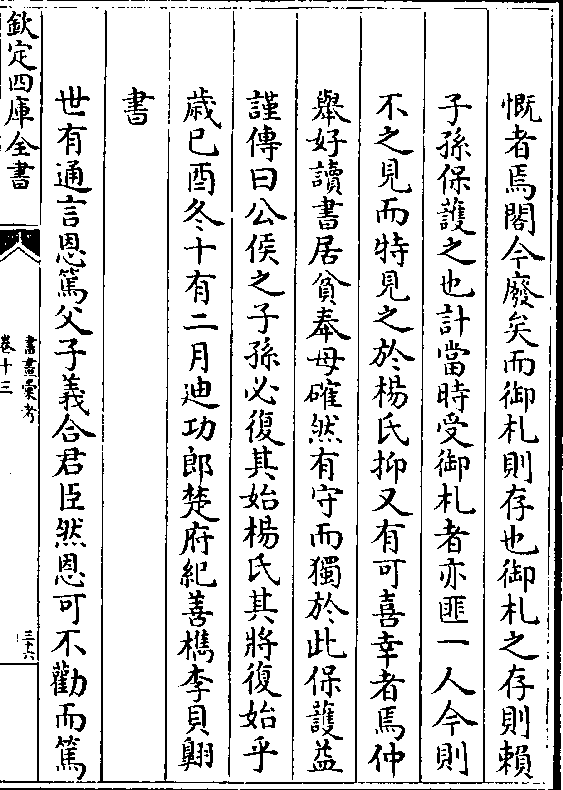 慨者焉閣今廢矣而御札則存也御札之存則賴
子孫保護之也計當時受御札者亦匪一人今則
不之見而特見之於楊氏抑又有可喜幸者焉仲
舉好讀書居貧奉母確然有守而獨於此保護益
謹傳曰公侯之子孫必復其始楊氏其將復始乎
歲已酉冬十有二月迪功郎楚府紀善檇李貝翶
書
世有通言恩篤父子義合君臣然恩可不勸而篤
欽定四庫全書
書畫彙考
卷十三
三十六